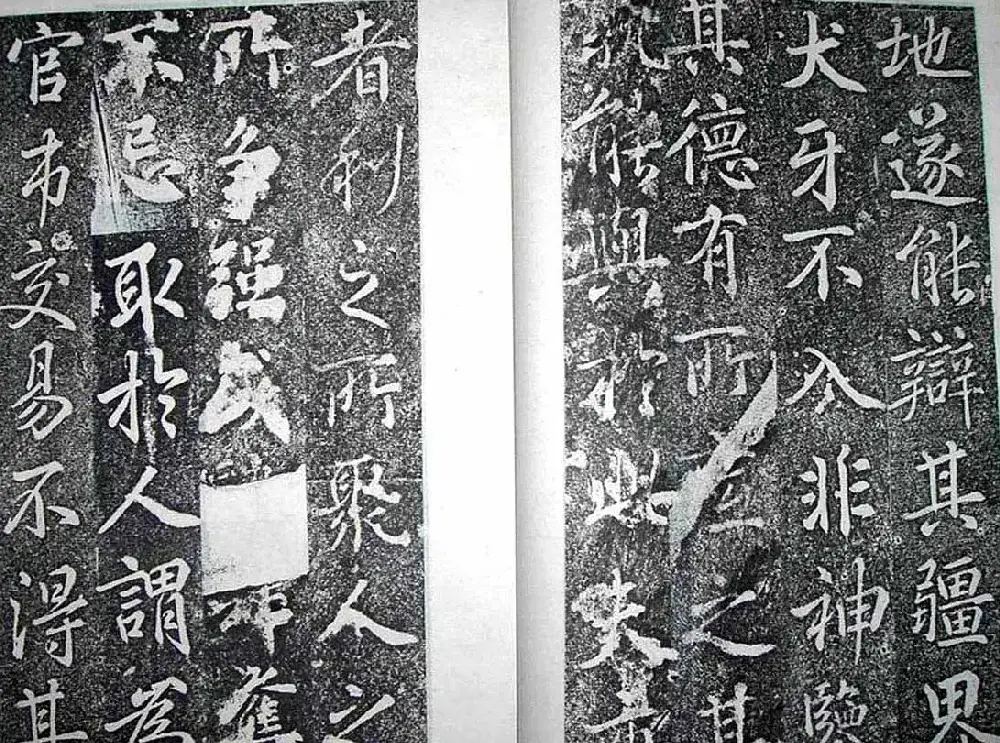 地遂能辯其疆界
犬牙不入非神鑒
其德有所至之其
孰能與於此夫
者利之所聚人之
所争强或奪
不忌取於人謂為
官市交易不得其